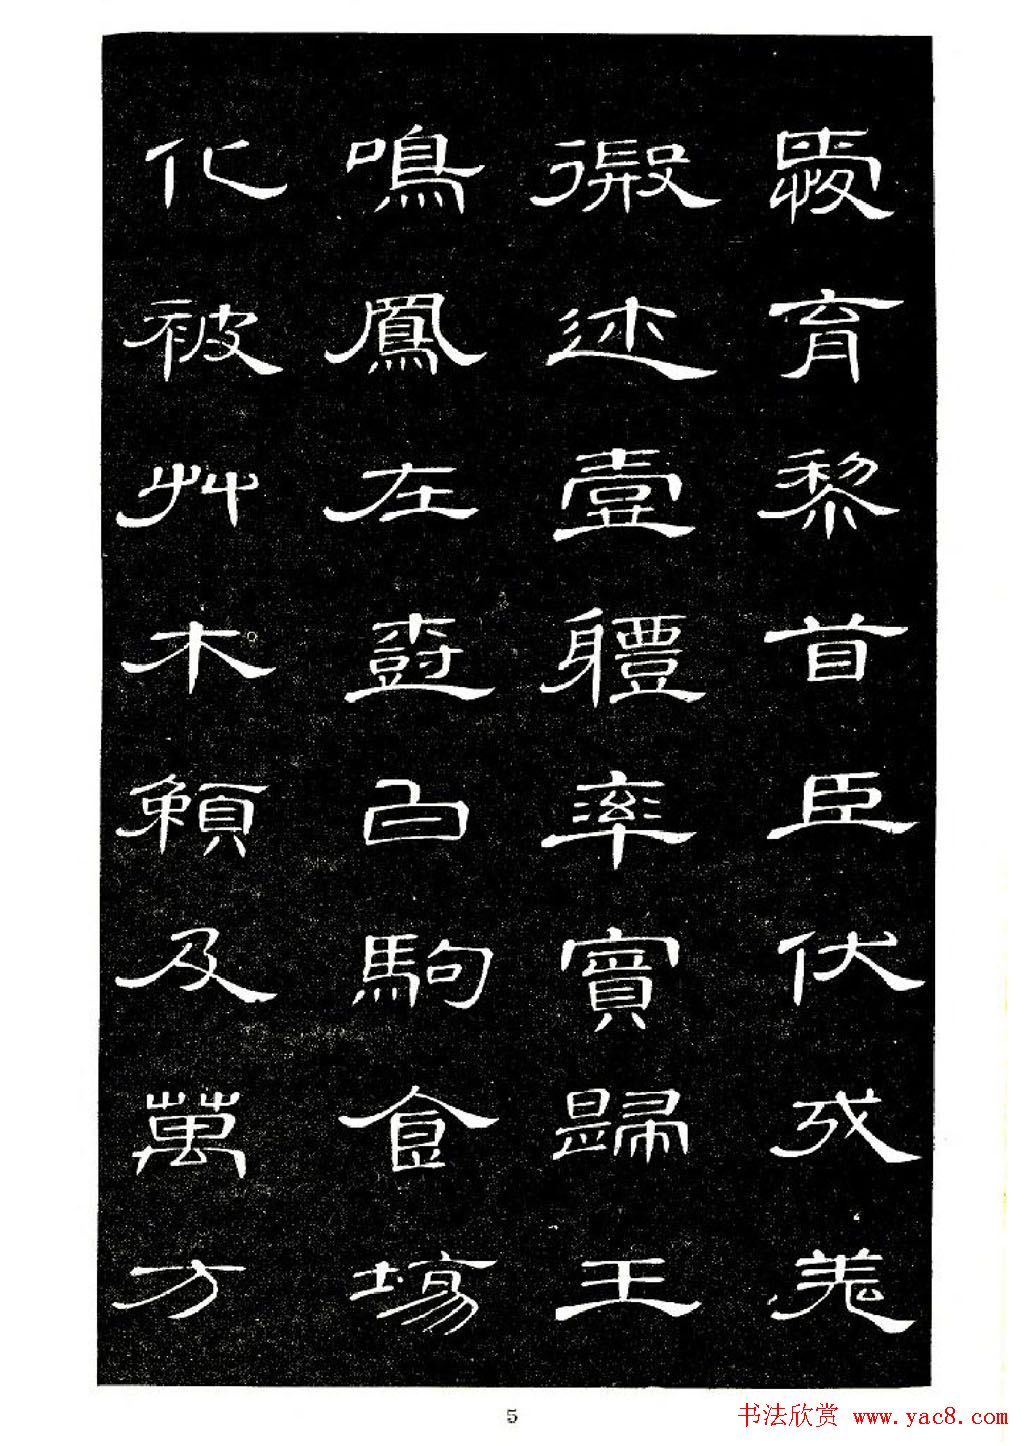 愛育黎首臣伏戎羌
遐迩壹體率賓歸王
鳴鳳在樹白駒食場
化被草木賴及萬方
5
书法欣赏 www.yac8.com